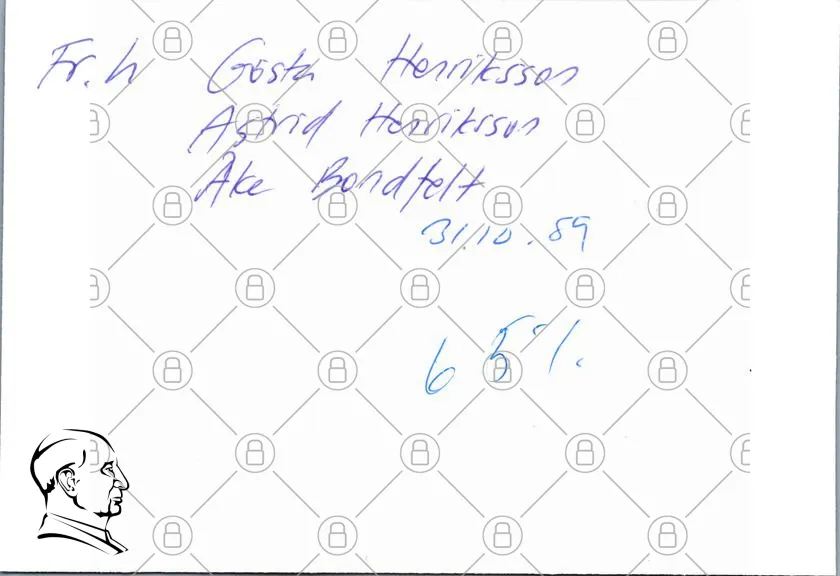 Fr. h Gösta Henriksson
Astrid Henriksson
Åke Bondfelt
31.10.89
65%.